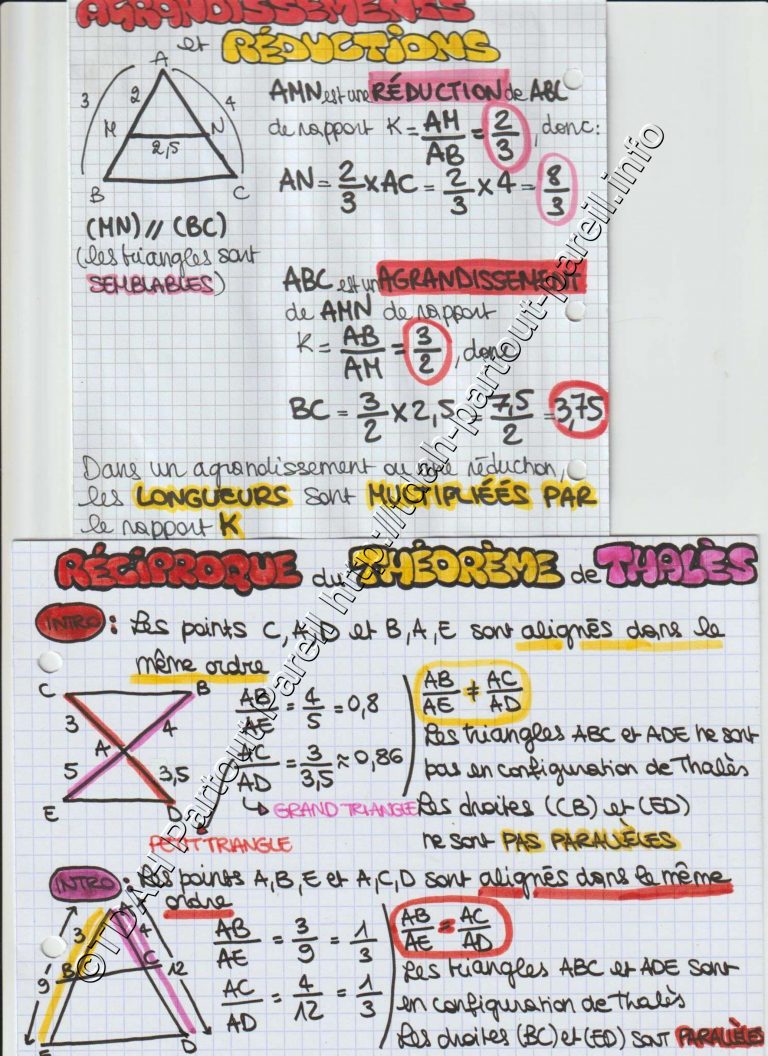 AGRANDISSEMENTS
et RÉDUCTIONS
A
3 2 4
M N
2,5
B C
(MN) // (BC)
(les triangles sont
SEMBLABLES)
AMN est une RÉDUCTION de ABC
de rapport K = AM/AB = 2/3, donc:
AN = 2/3 x AC = 2/3 x 4 = 8/3
ABC est un AGRANDISSEMENT
de AMN de rapport
K = AB/AM = 3/2, donc
BC = 3/2 x 2,5 = 7,5/2 = 3,75
Dans un agrandissement ou une réduction,
les LONGUEURS sont MULTIPLIÉÉS PAR
le rapport K
RÉCIPROQUE du THÉORÈME de THALÈS
INTRO : Les points C, A, D et B, A, E sont alignés dans le
même ordre
C B
3 4
A
5 3,5
E D
AB/AE = 4/5 = 0,8
AC/AD = 3/3,5 ≈ 0,86
GRAND TRIANGLE
PETIT TRIANGLE
AB/AE ≠ AC/AD
Les triangles ABC et ADE ne sont
pas en configuration de Thalès
Les droites (CB) et (ED)
ne sont PAS PARALLÈLES
INTRO : Les points A, B, E et A, C, D sont alignés dans le même
ordre
3 4
B C
9 12
E D
AB/AE = 3/9 = 1/3
AC/AD = 4/12 = 1/3
AB/AE = AC/AD
Les triangles ABC et ADE sont
en configuration de Thalès
Les droites (BC) et (ED) sont PARALLÈLES
©TDAH Partout Pareil http://tdah-partout-pareil.info